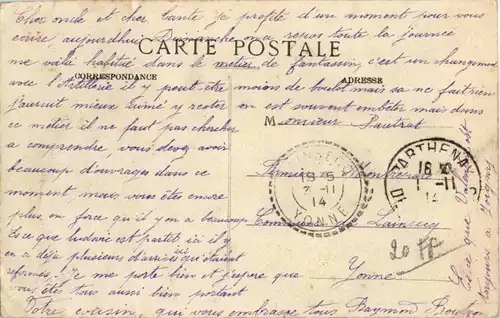 Cher oncle et cher tante je profite d'un moment pour vous
écrire, aujourdhui Dimanche on a repos toute la journée
CARTE POSTALE
me voilà habitué dans le métier de fantassin, c'est un changement
CORRESPONDANCE
ADRESSE
avec l'Artillerie il y peut être moins de boulot mais sa ne fait rien
j'aurait mieux aimé y rester on est souvent embêté mais dans
ce métier il ne faut pas chercher
a comprendre, vous devez avoir
beaucoup d'ouvrages dans ce
moment, mais vous êtes encore
plus en force qu'il y on a beaucoup
Es ce que ludovic est partit ici il y
en a déja plusieurs d'arrivés qui étaient
reformés. Je me porte bien et j'espère que
vous êtes tous aussi bien portant
Votre cousin, qui vous embrasse tous Raymond
Monsieur Sautrat
Lainsecq
Yonne
19 5
3 -11
14
YONNE
PARTHENAY
16
1 -11
14
20 ff
Es ce que est
toujours a